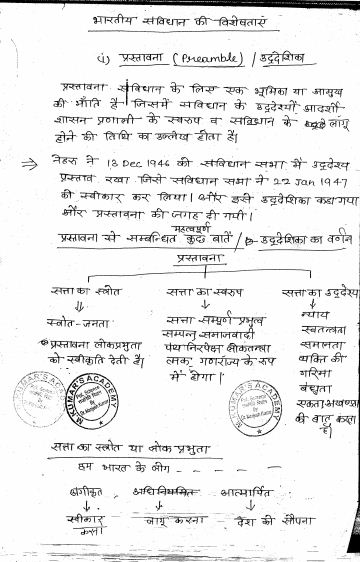 भारतीय संविधान की विशेषताएं
(i) प्रस्तावना (Preamble) / उद्देशिका
प्रस्तावना संविधान के लिए एक भूमिका या आमुख
की भाँति है जिसमें संविधान के उद्देश्यों आदर्शों
शासन प्रणाली के स्वरूप व संविधान के लागू
होने की तिथि का उल्लेख होता है।
⇒ नेहरू ने 13 Dec 1946 को संविधान सभा में उद्देश्य
प्रस्ताव रखा जिसे संविधान सभा ने 22 Jan 1947
को स्वीकार कर लिया। और इसी उद्देशिका कहा गया
और प्रस्तावना की जगह दी गयी।
महत्वपूर्ण
प्रस्तावना से सम्बन्धित कुछ बातें / उद्देशिका का वर्णन
प्रस्तावना
सत्ता का स्त्रोत सत्ता का स्वरूप सत्ता का उद्देश्य
स्त्रोत-जनता सत्ता सम्पूर्ण प्रभुत्व न्याय
प्रस्तावना लोकप्रभुता सम्पन्न समाजवादी स्वतन्त्रता
को स्वीकृति देती है। पंथनिरपेक्ष लोकतन्त्रा समानता
त्मक गणराज्य के रूप व्यक्ति की
में होगा। गरिमा
बंधुता
एकता अखण्डता
की बात करता
है।
M.KUMAR'S ACADEMY
M.KUMAR'S ACADEMY
सत्ता का स्त्रोत या लोक प्रभुता
हम भारत के लोग - - - - -
अंगीकृत , अधिनियमित आत्मार्पित
↓ ↓ ↓
स्वीकार लागू करना देश को सौंपना
करना